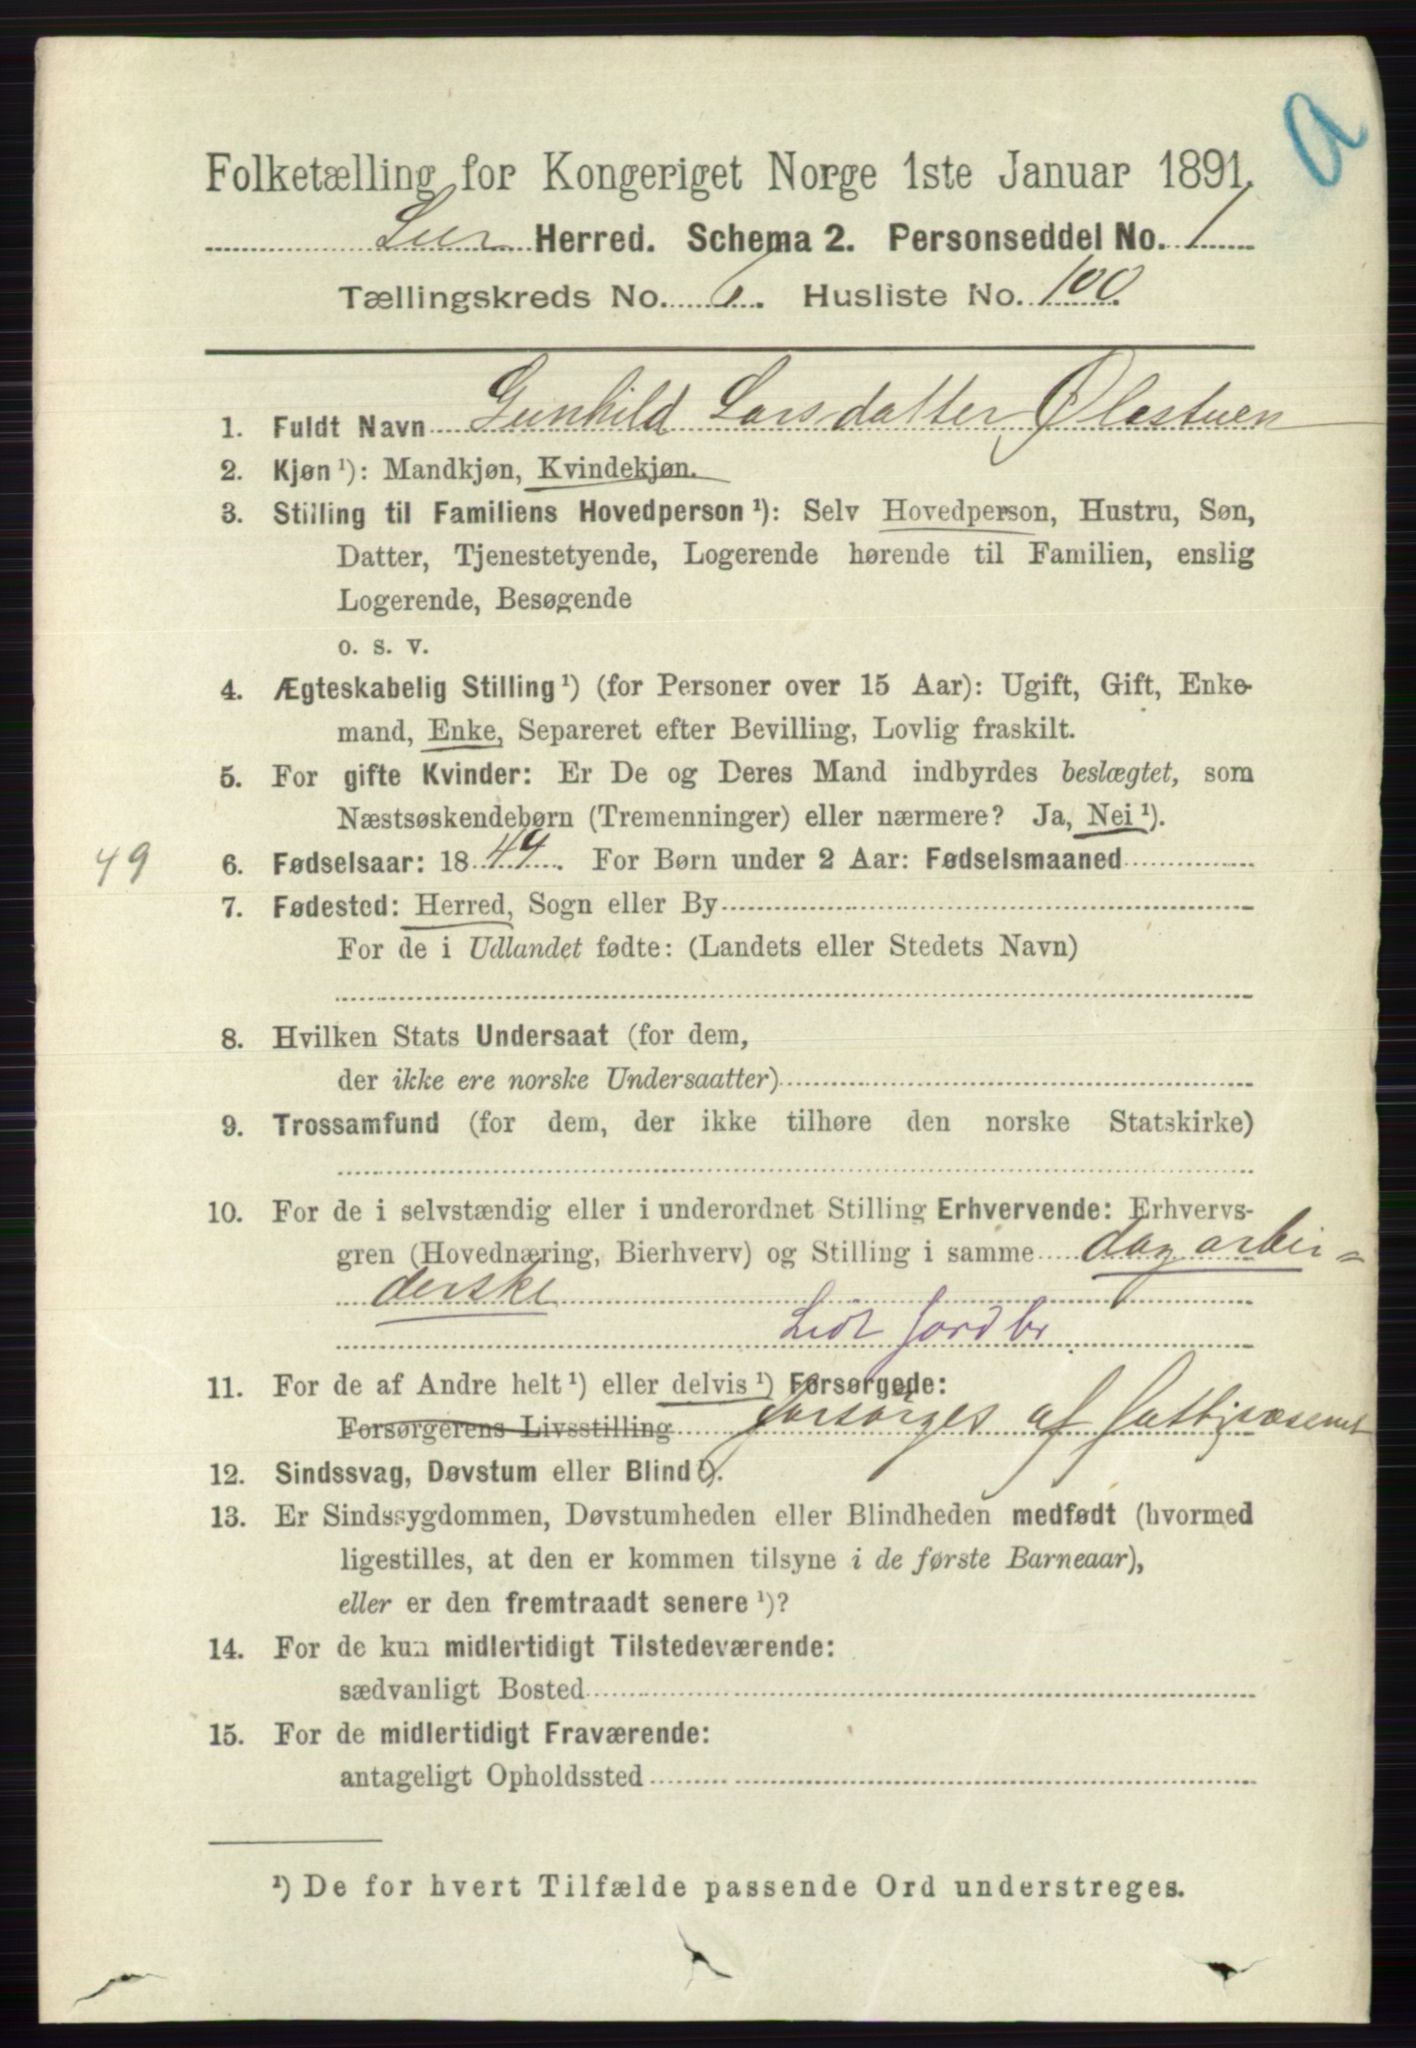 a
Folketælling for Kongeriget Norge 1ste Januar 1891.
Lier Herred. Schema 2. Personseddel No. 1
Tællingskreds No. 7. Husliste No. 100.
1. Fuldt Navn Gunhild Larsdatter Olastuen
2. Kjøn ¹): Mandkjøn, Kvindekjøn.
3. Stilling til Familiens Hovedperson ¹): Selv Hovedperson, Hustru, Søn,
Datter, Tjenestetyende, Logerende hørende til Familien, enslig
Logerende, Besøgende
o. s. v.
4. Ægteskabelig Stilling ¹) (for Personer over 15 Aar): Ugift, Gift, Enke-
mand, Enke, Separeret efter Bevilling, Lovlig fraskilt.
5. For gifte Kvinder: Er De og Deres Mand indbyrdes beslægtet, som
Næstsøskendebørn (Tremenninger) eller nærmere? Ja, Nei ¹).
49 6. Fødselsaar: 1849. For Børn under 2 Aar: Fødselsmaaned
7. Fødested: Herred, Sogn eller By
For de i Udlandet fødte: (Landets eller Stedets Navn)
8. Hvilken Stats Undersaat (for dem,
der ikke ere norske Undersaatter)
9. Trossamfund (for dem, der ikke tilhøre den norske Statskirke)
10. For de i selvstændig eller i underordnet Stilling Erhvervende: Erhvervs-
gren (Hovednæring, Bierhverv) og Stilling i samme dagarbei=
derske
Lidt Jordbr
11. For de af Andre helt ¹) eller delvis ¹) Forsørgede:
Forsørgerens Livsstilling forsørges af fattigvæsenet
12. Sindssvag, Døvstum eller Blind ¹).
13. Er Sindssygdommen, Døvstumheden eller Blindheden medfødt (hvormed
ligestilles, at den er kommen tilsyne i de første Barneaar),
eller er den fremtraadt senere ¹)?
14. For de kun midlertidigt Tilstedeværende:
sædvanligt Bosted
15. For de midlertidigt Fraværende:
antageligt Opholdssted
¹) De for hvert Tilfælde passende Ord understreges.